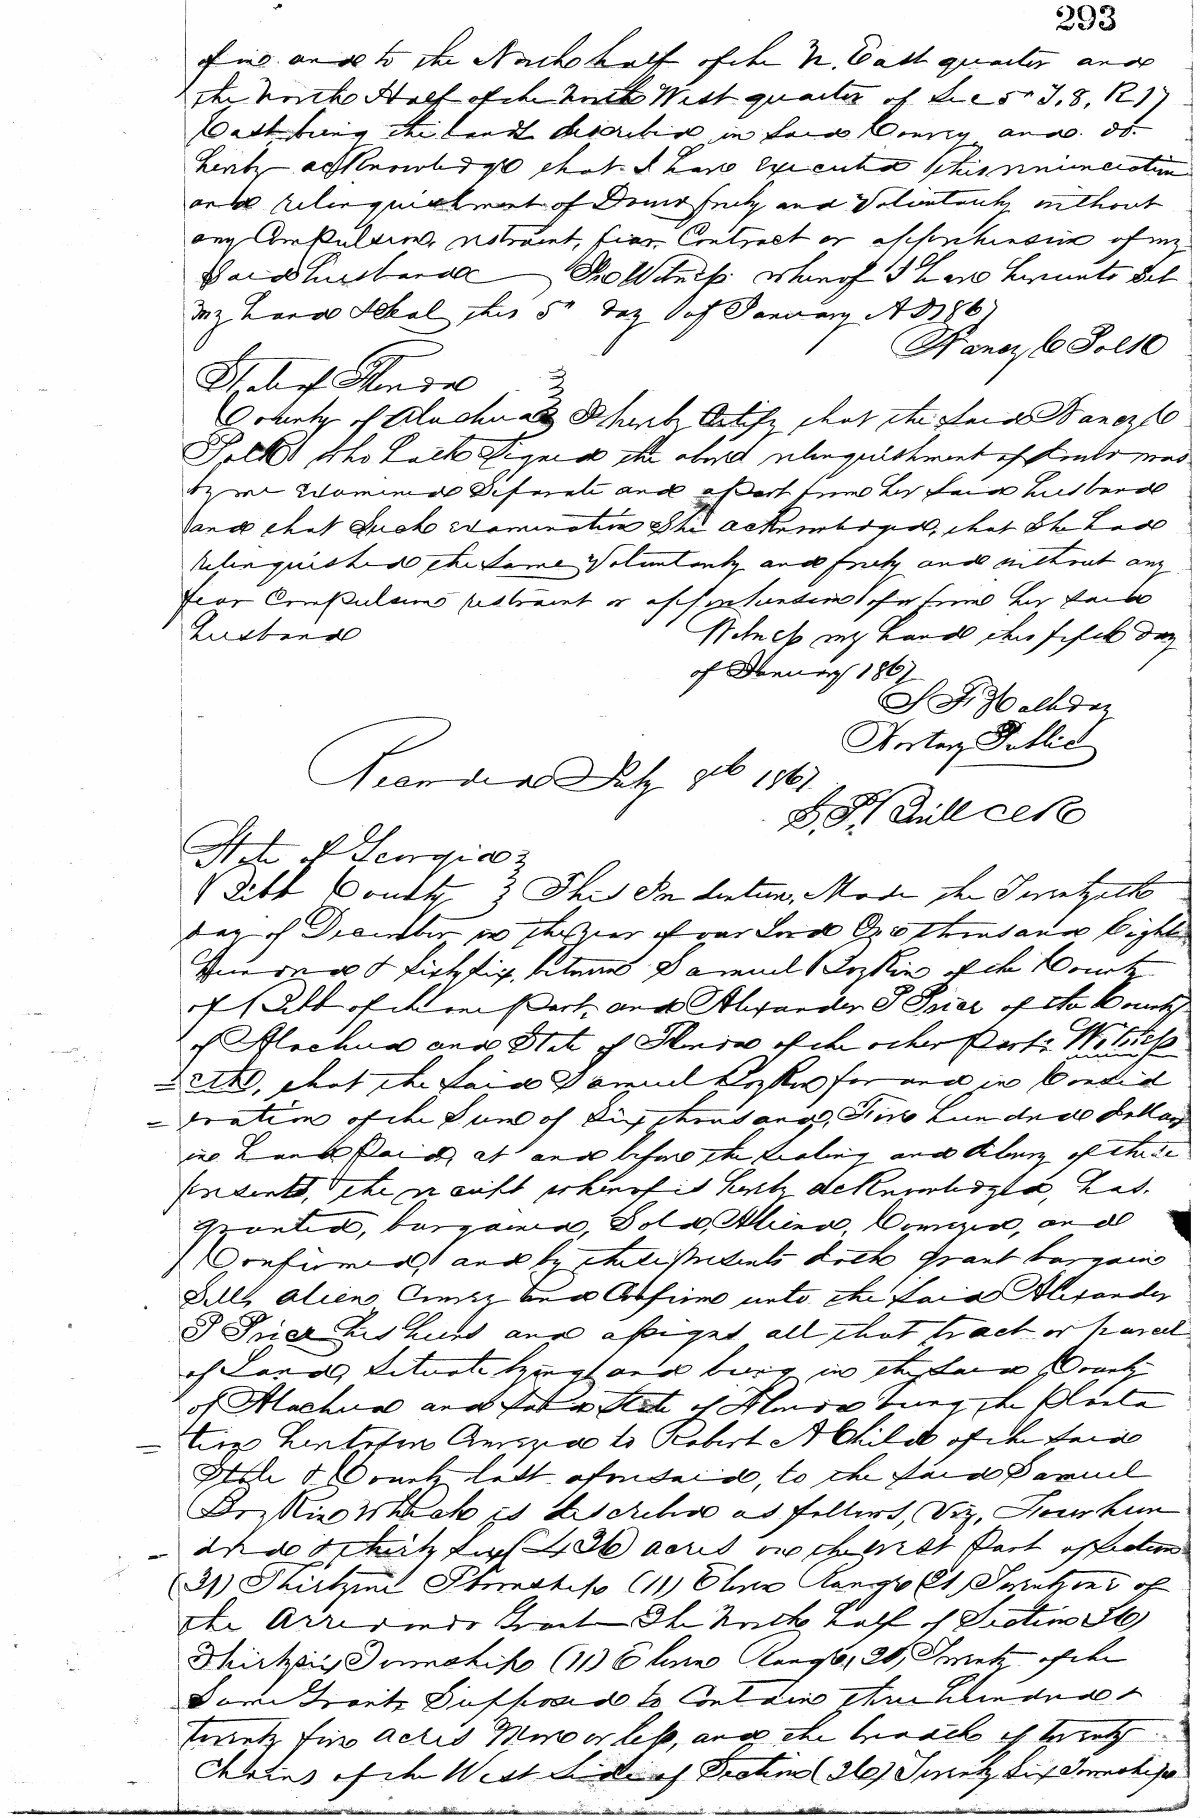 293
of in and to the North half of the N. East quarter and
the North Half of the North West quarter of Sec 5" T, 8, R 17
East, being the land described in said Convey and do
hereby acknowledge that I have executed this renunciation
and relinquishment of Dower freely and Voluntarily without
any Compulsion, restraint, fear, Contract or apprehension of my
Said husband In Witness whereof I have hereunto Set
my hand & Seal this 5" day of January A D 1867
Nancy C Polk
State of Florida
County of Alachua I hereby Certify that the said Nancy C
Polk who hath Signed the above relinquishment of dower was
by me Examined Separate and apart from her said husband
and that Such examination She acknowledged, that She had
relinquished the same Voluntarily and freely and without any
fear Compulsion restraint or apprehension of or from her said
husband Witness my hand this fifth day
of January 1867
S F Halliday
Nortary Public
Recorded July 8th 1867
Clk
State of Georgia
Bibb County This Indenture, Made the Twentyeth
day of December in the year of our Lord One thousand Eight
Hundred & Sixty six, between Samuel Boykin of the County
of Bibb of the one Part, and Alexander P Price of the County
of Alachua and State of Florida of the other Part: Witness
=eth, that the said Samuel Boykin for and in Consid
=eration of the Sum of Six thousand, Five hundred dollars
in hand Paid, at and before the sealing and delivery of these
presents, the receipt whereof is hereby acknowledged, has.
granted, bargained, Sold, Aliened, Conveyed, and
Confirmed, and by these presents doth grant bargain
Sell, alien, Convey and Confirm unto the said Alexander
P Price his heirs and assigns all that tract or parcel
of Land, Situate lying and being in the said County
of Alachua and said State of Florida being the Planta
=tion heretofore Conveyed to Robert A Child of the said
State & County last aforesaid, to the said Samuel
Boykin which is described as follows, Viz, Four hun
-dred & thirty six (436) acres on the west Part of Section
(31) Thirtyone Township (11) Eleven Range (21) Twentyone of
the Arredondo Grant The North half of Section 36)
Thirtysix Township (11) Eleven Range, 20, Twenty of the
Same Grant, Supposed to Contain three hundred &
twenty five acres More or less, and the breadth of twenty
Chains of the West Side of Section (26) Twenty Six Township